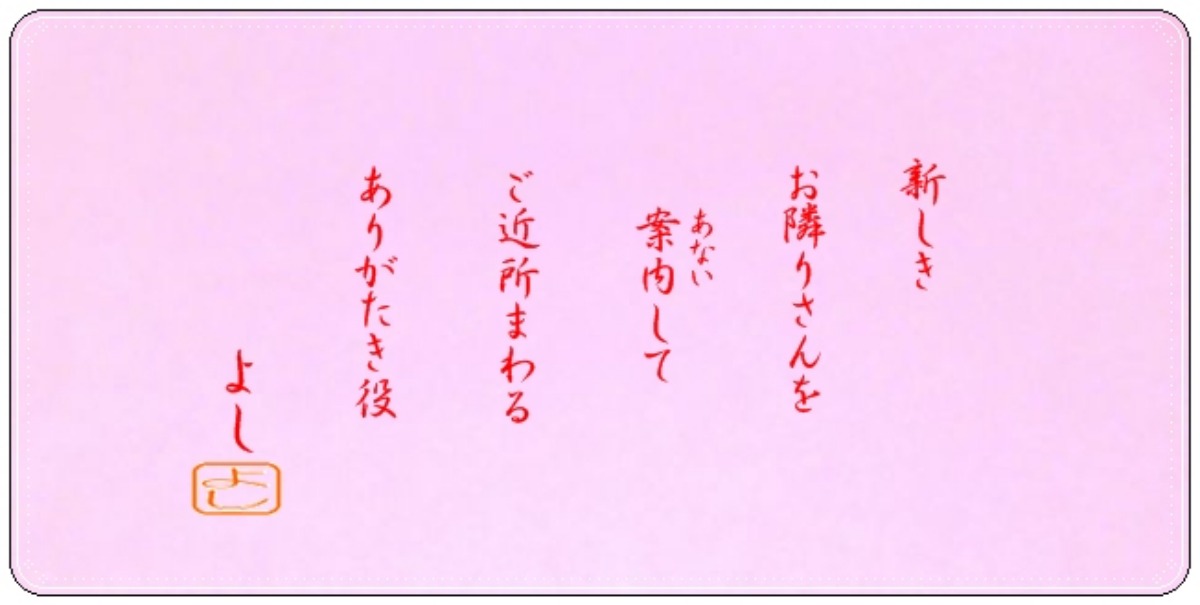 新しき
お隣りさんを
あない
案内して
ご近所まわる
ありがたき役
よし
よし